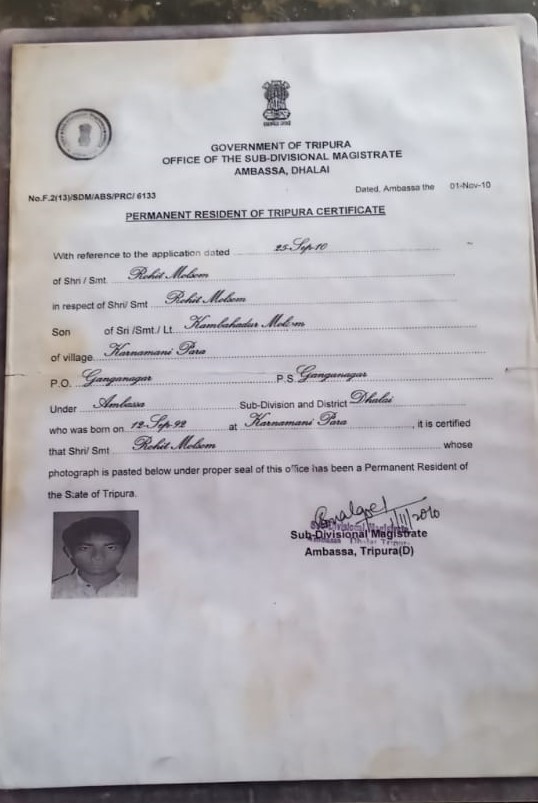 GOVERNMENT OF TRIPURA
OFFICE OF THE SUB-DIVISIONAL MAGISTRATE
AMBASSA, DHALAI
No.F.2(13)/SDM/ABS/PRC/ 6133 Dated, Ambassa the 01-Nov-10
PERMANENT RESIDENT OF TRIPURA CERTIFICATE
With reference to the application dated 25-Sep-10
of Shri / Smt. Rohit Molsom
in respect of Shri/ Smt Rohit Molsom
Son of Sri /Smt./ Lt. Kambahadur Molsom
of village Karnamani Para
P.O. Ganganagar P.S. Ganganagar
Under Ambassa Sub-Division and District Dhalai
who was born on 12-Sep-92 at Karnamani Para, it is certified
that Shri/ Smt Rohit Molsom whose
photograph is pasted below under proper seal of this office has been a Permanent Resident of
the State of Tripura.
1/11/2010
Sub-Divisional Magistrate
Sub-Divisional Magistrate
Ambassa, Tripura(D)